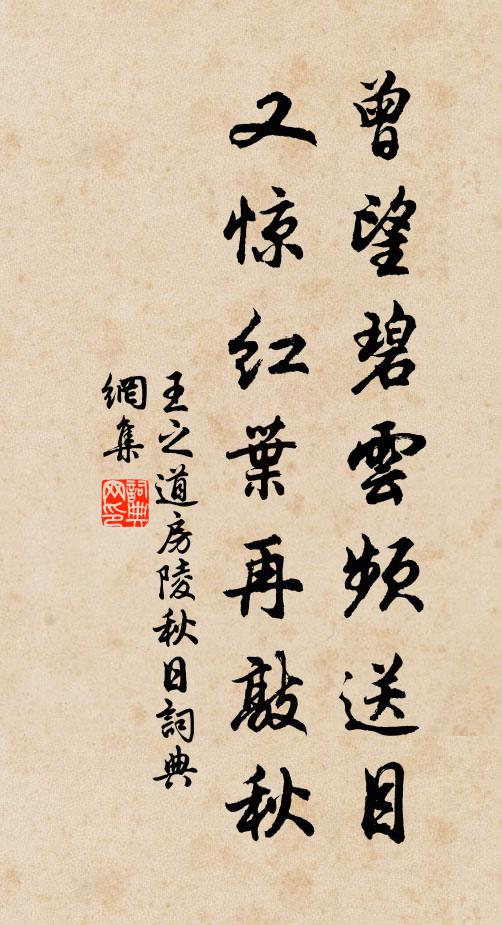 曾望碧雲頻送目
又惊紅葉再敲秋
王之道房陵秋日詞典
網集
詞典
网印